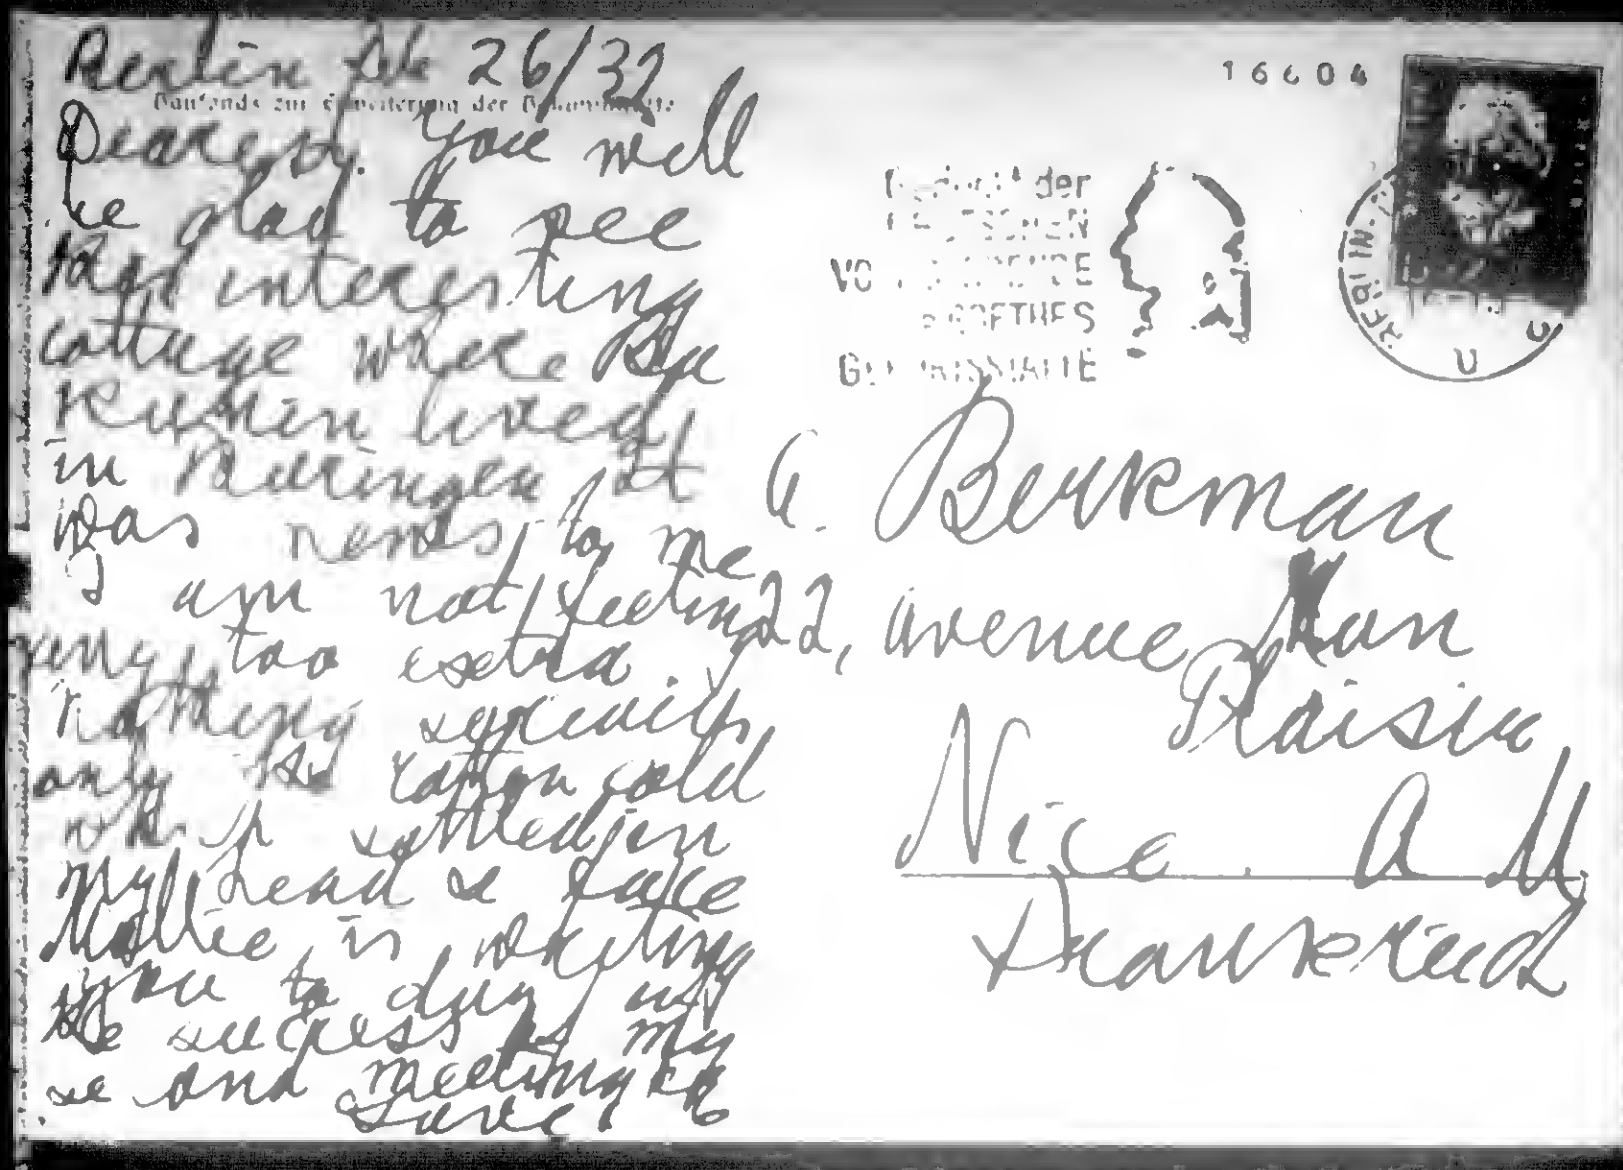 Berlin Feb 26/32
Baufonds zur Erweiterung der
Dearest. You will
be glad to see
the interesting
cottage where Ba
Kunin lived
in Thuringen It
was news to me
I am not feeling
very too extra
nothing serious
only the rotten cold
which settled in
my head & face
Mollie is writing
you to day
the success of my
se ond meeting
Love
16604
der
GOETHES
BERLIN
A. Berkman
22, avenue Mon
Plaisir
Nice. A M
Frankreich